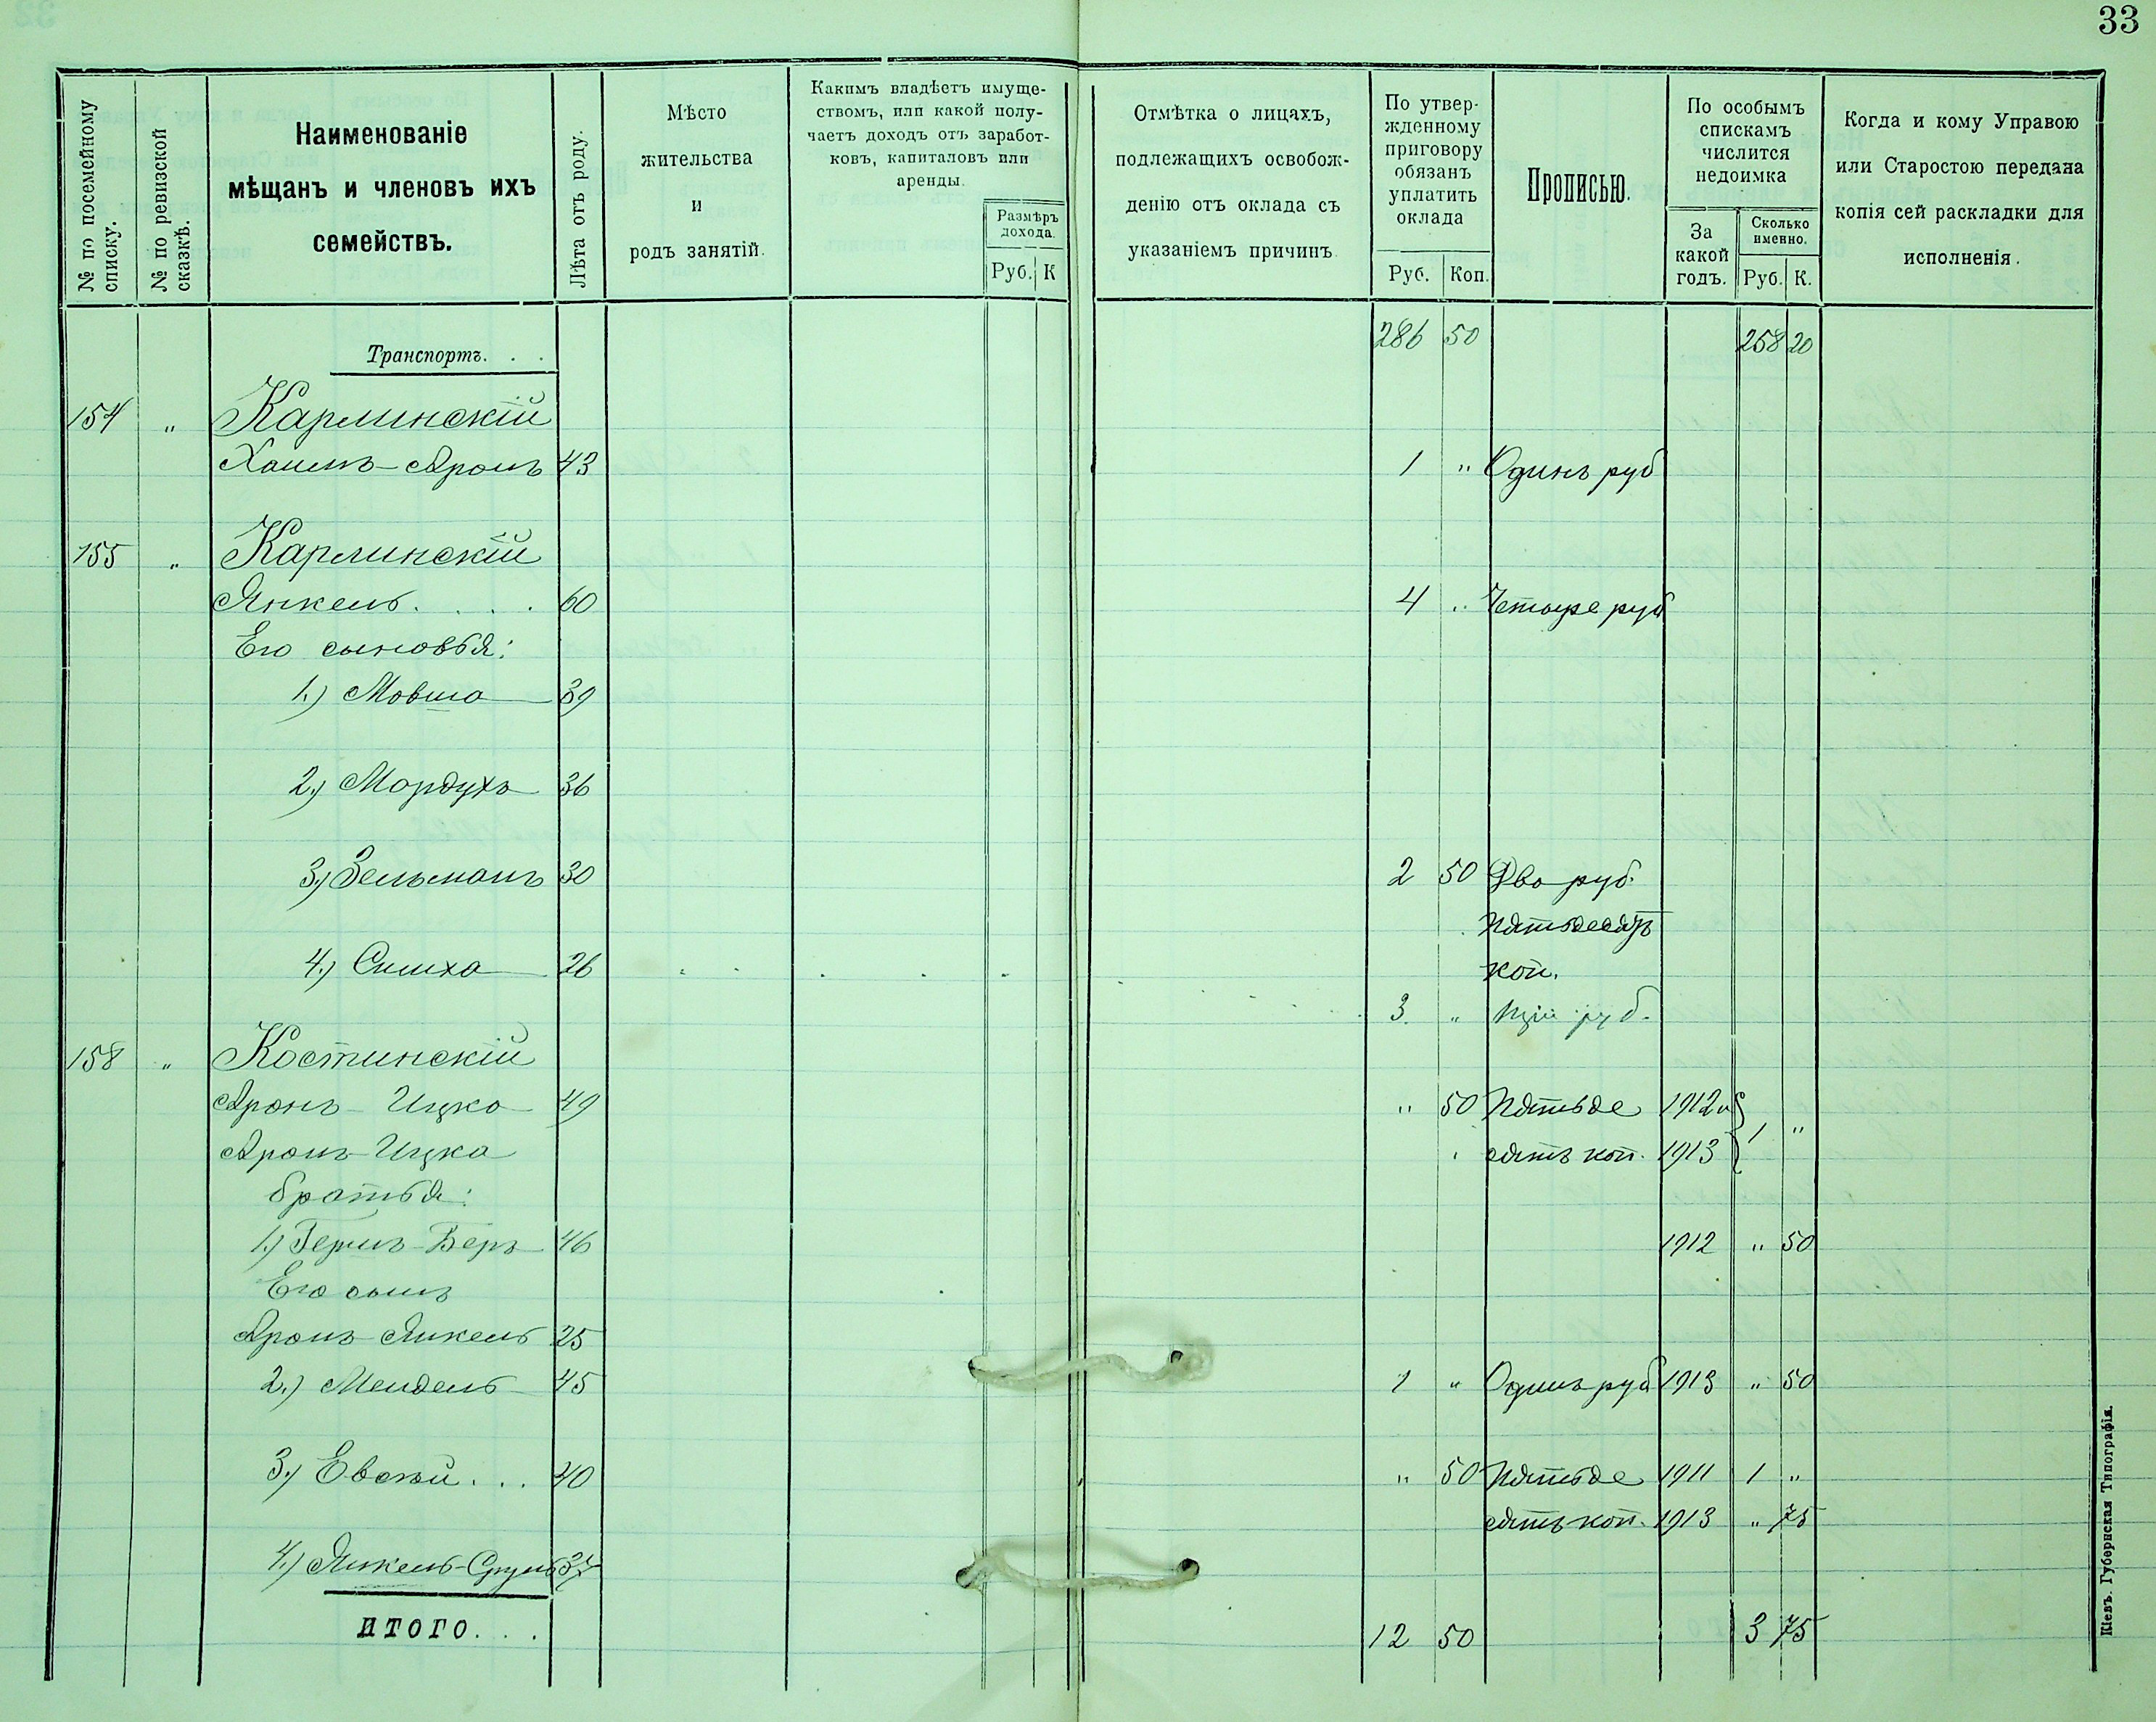 33
№ по посемейному списку.
№ по ревизской сказкѣ.
Наименованіе
мѣщанъ и членовъ ихъ
семействъ.
Лѣта отъ роду.
Мѣсто
жительства
и
родъ занятій.
Какимъ владѣетъ имуще-
ствомъ, или какой полу-
чаетъ доходъ отъ заработ-
ковъ, капиталовъ или
аренды.
Размѣръ
дохода.
Руб. К
Отмѣтка о лицахъ,
подлежащихъ освобож-
денію отъ оклада съ
указаніемъ причинъ
По утвер-
жденному
приговору
обязанъ
уплатить
оклада
Руб. Коп.
Прописью.
По особымъ
спискамъ
числится
недоимка
За
какой
годъ.
Сколько
именно.
Руб. К.
Когда и кому Управою
или Старостою передана
копія сей раскладки для
исполненія.
Транспортъ. . . 286 50 258 20
154 " Карлинскій
Хаимъ-Аронъ 43 1 " Одинъ руб
155 " Карлинскій
Янкель. . . . 60 4 " Четыре руб
Его сыновья:
1.) Мовша 39
2.) Мордухъ 36
3.) Зельманъ 30 2 50 Два руб.
пятьдесятъ
4.) Симха 26 коп.
3 " три руб.
158 " Костинскій
Аронъ-Ицко 49 " 50 Пятьде 1912 и
Аронъ-Ицка сятъ коп. 1913 1 "
братья:
1.) Гершъ-Беръ 46 1912 " 50
Его сынъ
Аронъ-Янкель 25
2.) Мендель 45 1 " Одинъ руб 1913 " 50
3.) Евсей . . . 40 " 50 Пятьде 1911 1 "
сятъ коп. 1913 " 75
4.) Янкель-Сруль 37
ИТОГО. . . 12 50 3 75
Кіевъ. Губернская Типографія.